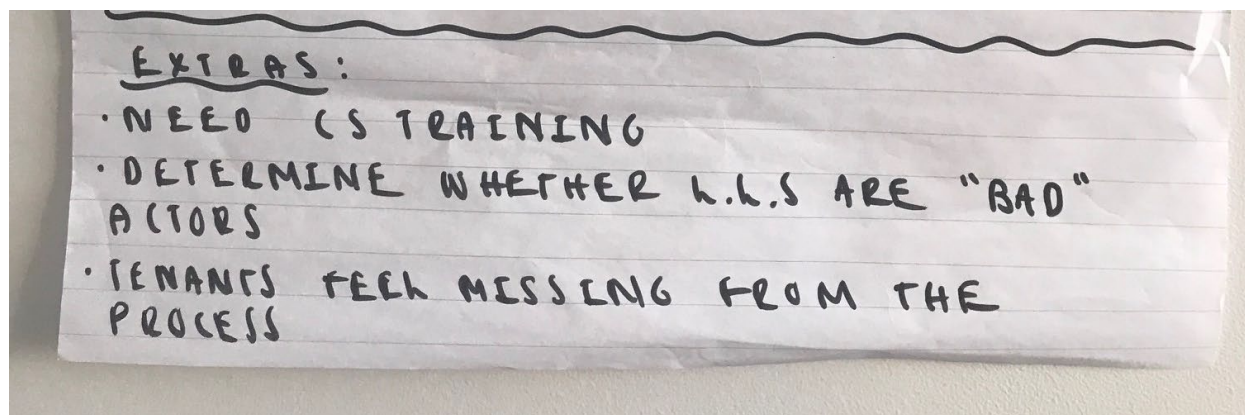 EXTRAS:
· NEED CS TRAINING
· DETERMINE WHETHER L.L.S ARE "BAD"
ACTORS
· TENANTS FEEL MISSING FROM THE
PROCESS